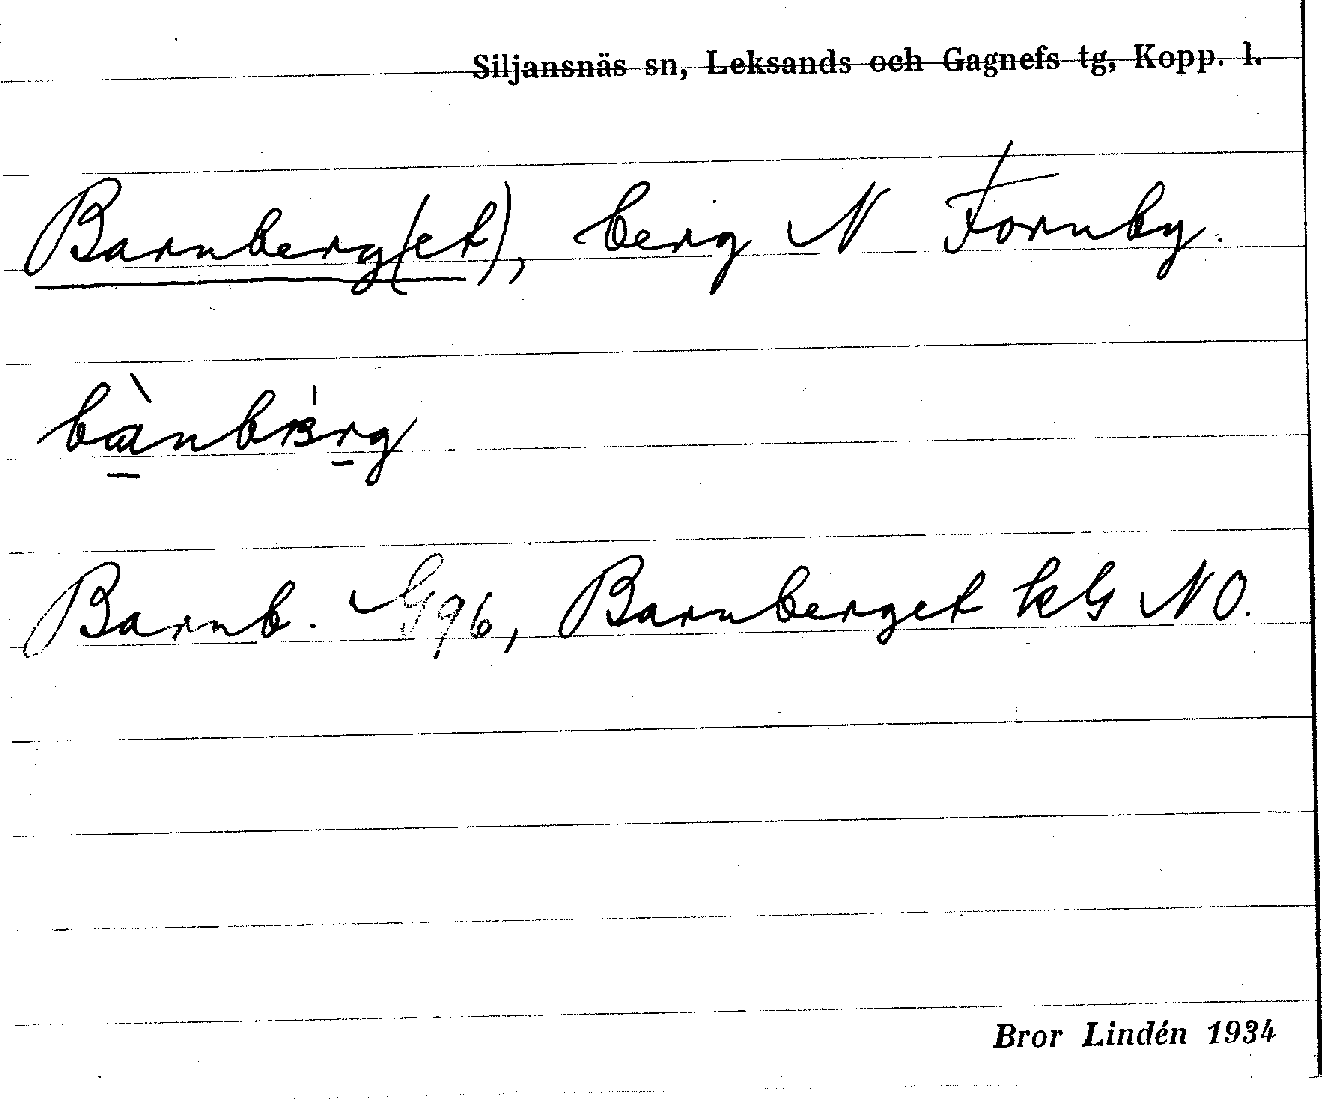 Siljansnäs sn, Leksands och Gagnefs tg, Kopp. l.
Barnberg(et), berg N Fornby.
Barnb. G96, Barnberget kG NO.
Bror Lindén 1934